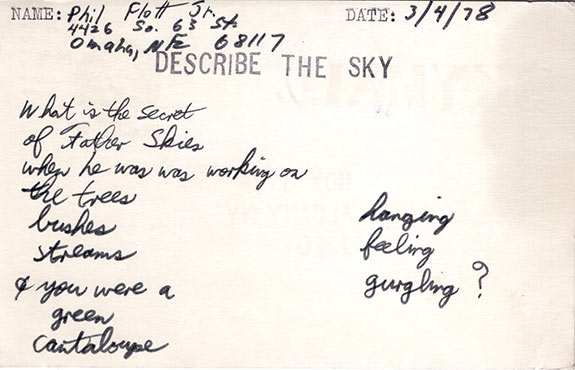 NAME: Phil Flott Jr.
4426 So. 63 St.
Omaha, NE 68117
DATE: 3/4/78
DESCRIBE THE SKY
What is the secret
of Father Skies
when he was was working on
the trees
bushes
streams
& you were a
green
cantaloupe
hanging
feeling
gurgling ?